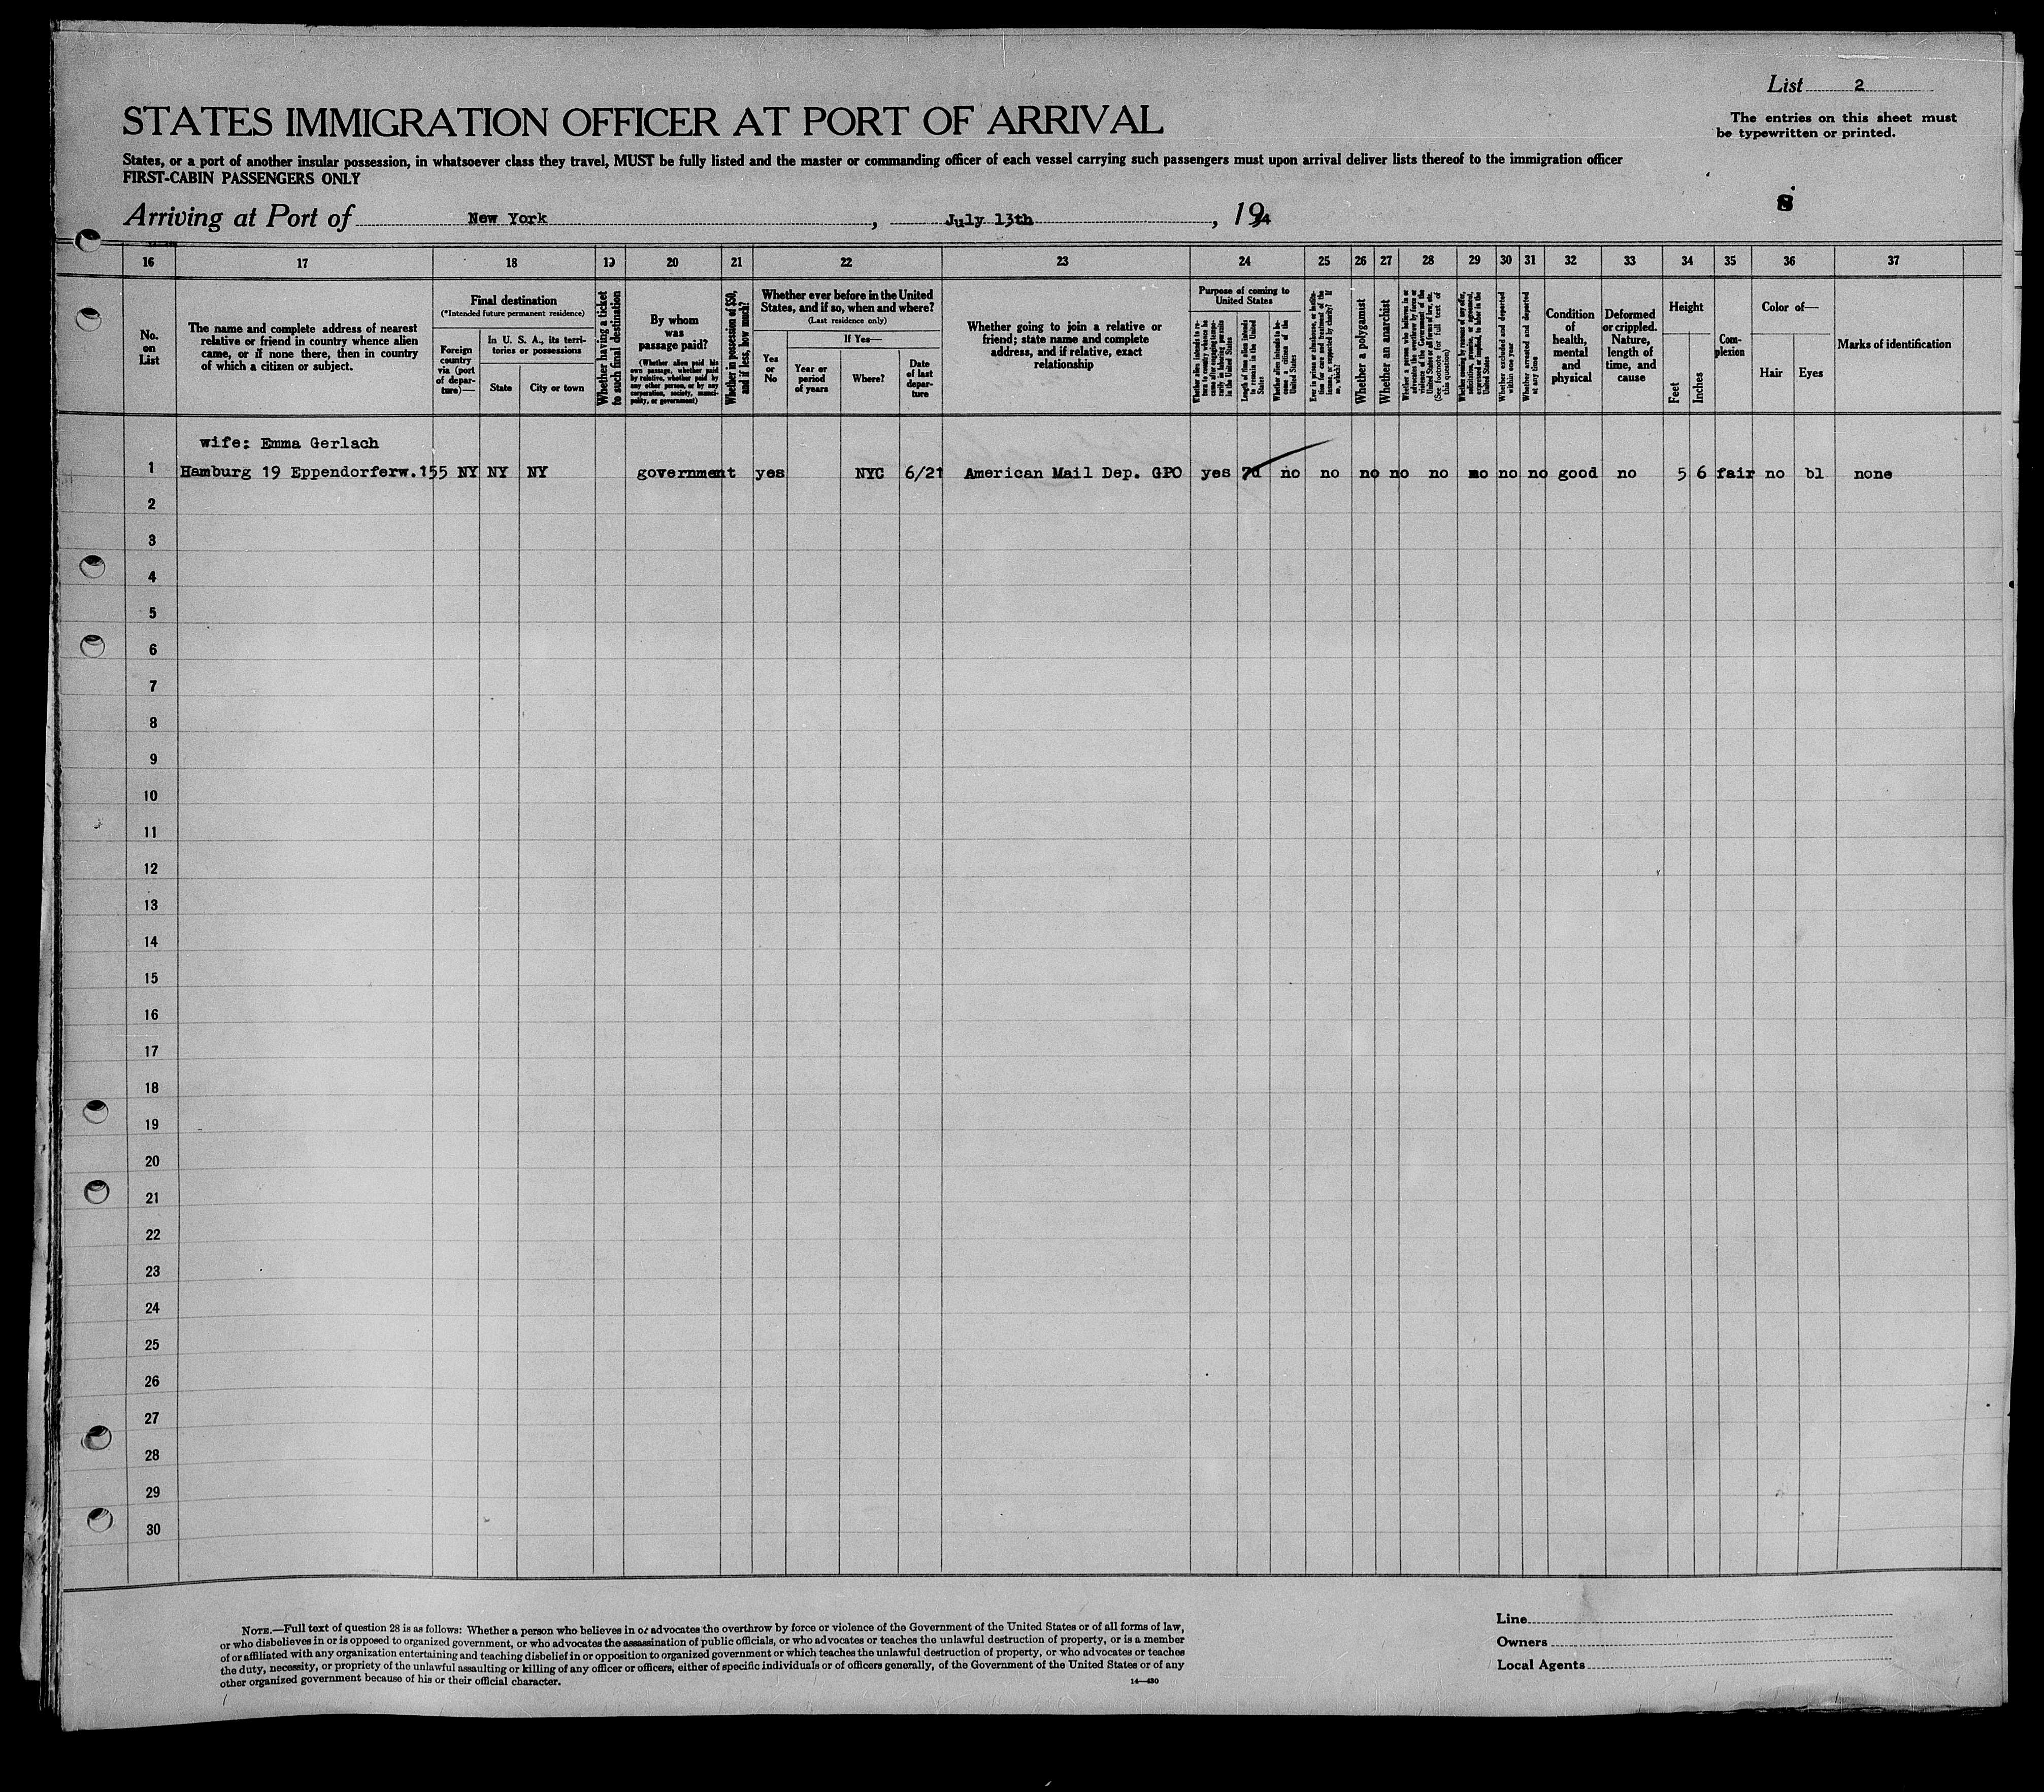 List 2
STATES IMMIGRATION OFFICER AT PORT OF ARRIVAL
The entries on this sheet must
be typewritten or printed.
States, or a port of another insular possession, in whatsoever class they travel, MUST be fully listed and the master or commanding officer of each vessel carrying such passengers must upon arrival deliver lists thereof to the immigration officer
FIRST-CABIN PASSENGERS ONLY
Arriving at Port of New York, July 13th, 1934
16 17 18 19 20 21 22 23 24 25 26 27 28 29 30 31 32 33 34 35 36 37
No.
on
List
The name and complete address of nearest
relative or friend in country whence alien
came, or if none there, then in country
of which a citizen or subject.
Final destination
(*Intended future permanent residence)
Foreign
country
via (port
of depar-
ture)—
In U. S. A., its terri-
tories or possessions
State
City or town
Whether having a ticket
to such final destination
By whom
was
passage paid?
(Whether alien paid his
own passage, whether paid
by relative, whether paid by
any other person, or by any
corporation, society, munici-
pality, or government)
Whether in possession of $50,
and if less, how much?
Whether ever before in the United
States, and if so, when and where?
(Last residence only)
Yes
or
No
If Yes—
Year or
period
of years
Where?
Date
of last
depar-
ture
Whether going to join a relative or
friend; state name and complete
address, and if relative, exact
relationship
Purpose of coming to
United States
Whether alien intends to re-
turn to country whence he
came after engaging tempo-
rarily in laboring pursuits
in the United States
Length of time alien intends
to remain in the United
States
Whether alien intends to be-
come a citizen of the
United States
Ever in prison or almshouse, or institu-
tion for care and treatment of the
insane, or supported by charity? If
so, which?
Whether a polygamist
Whether an anarchist
Whether a person who believes in or
advocates the overthrow by force or
violence of the Government of the
United States or all forms of law, etc.
(See footnote for full text of
this question)
Whether coming by reason of any offer,
solicitation, promise, or agreement,
expressed or implied, to labor in the
United States
Whether excluded and deported
within one year
Whether arrested and deported
at any time
Condition
of
health,
mental
and
physical
Deformed
or crippled.
Nature,
length of
time, and
cause
Height
Feet
Inches
Com-
plexion
Color of—
Hair
Eyes
Marks of identification
wife: Emma Gerlach
1 Hamburg 19 Eppendorferw.155 NY NY NY government yes NYC 6/21 American Mail Dep. GPO yes 7d no no no no no no no no good no 5 6 fair no bl none
2
3
4
5
6
7
8
9
10
11
12
13
14
15
16
17
18
19
20
21
22
23
24
25
26
27
28
29
30
NOTE.—Full text of question 28 is as follows: Whether a person who believes in or advocates the overthrow by force or violence of the Government of the United States or of all forms of law,
or who disbelieves in or is opposed to organized government, or who advocates the assassination of public officials, or who advocates or teaches the unlawful destruction of property, or is a member
of or affiliated with any organization entertaining and teaching disbelief in or opposition to organized government or which teaches the unlawful destruction of property, or who advocates or teaches
the duty, necessity, or propriety of the unlawful assaulting or killing of any officer or officers, either of specific individuals or of officers generally, of the Government of the United States or of any
other organized government because of his or their official character.
14—430
Line
Owners
Local Agents